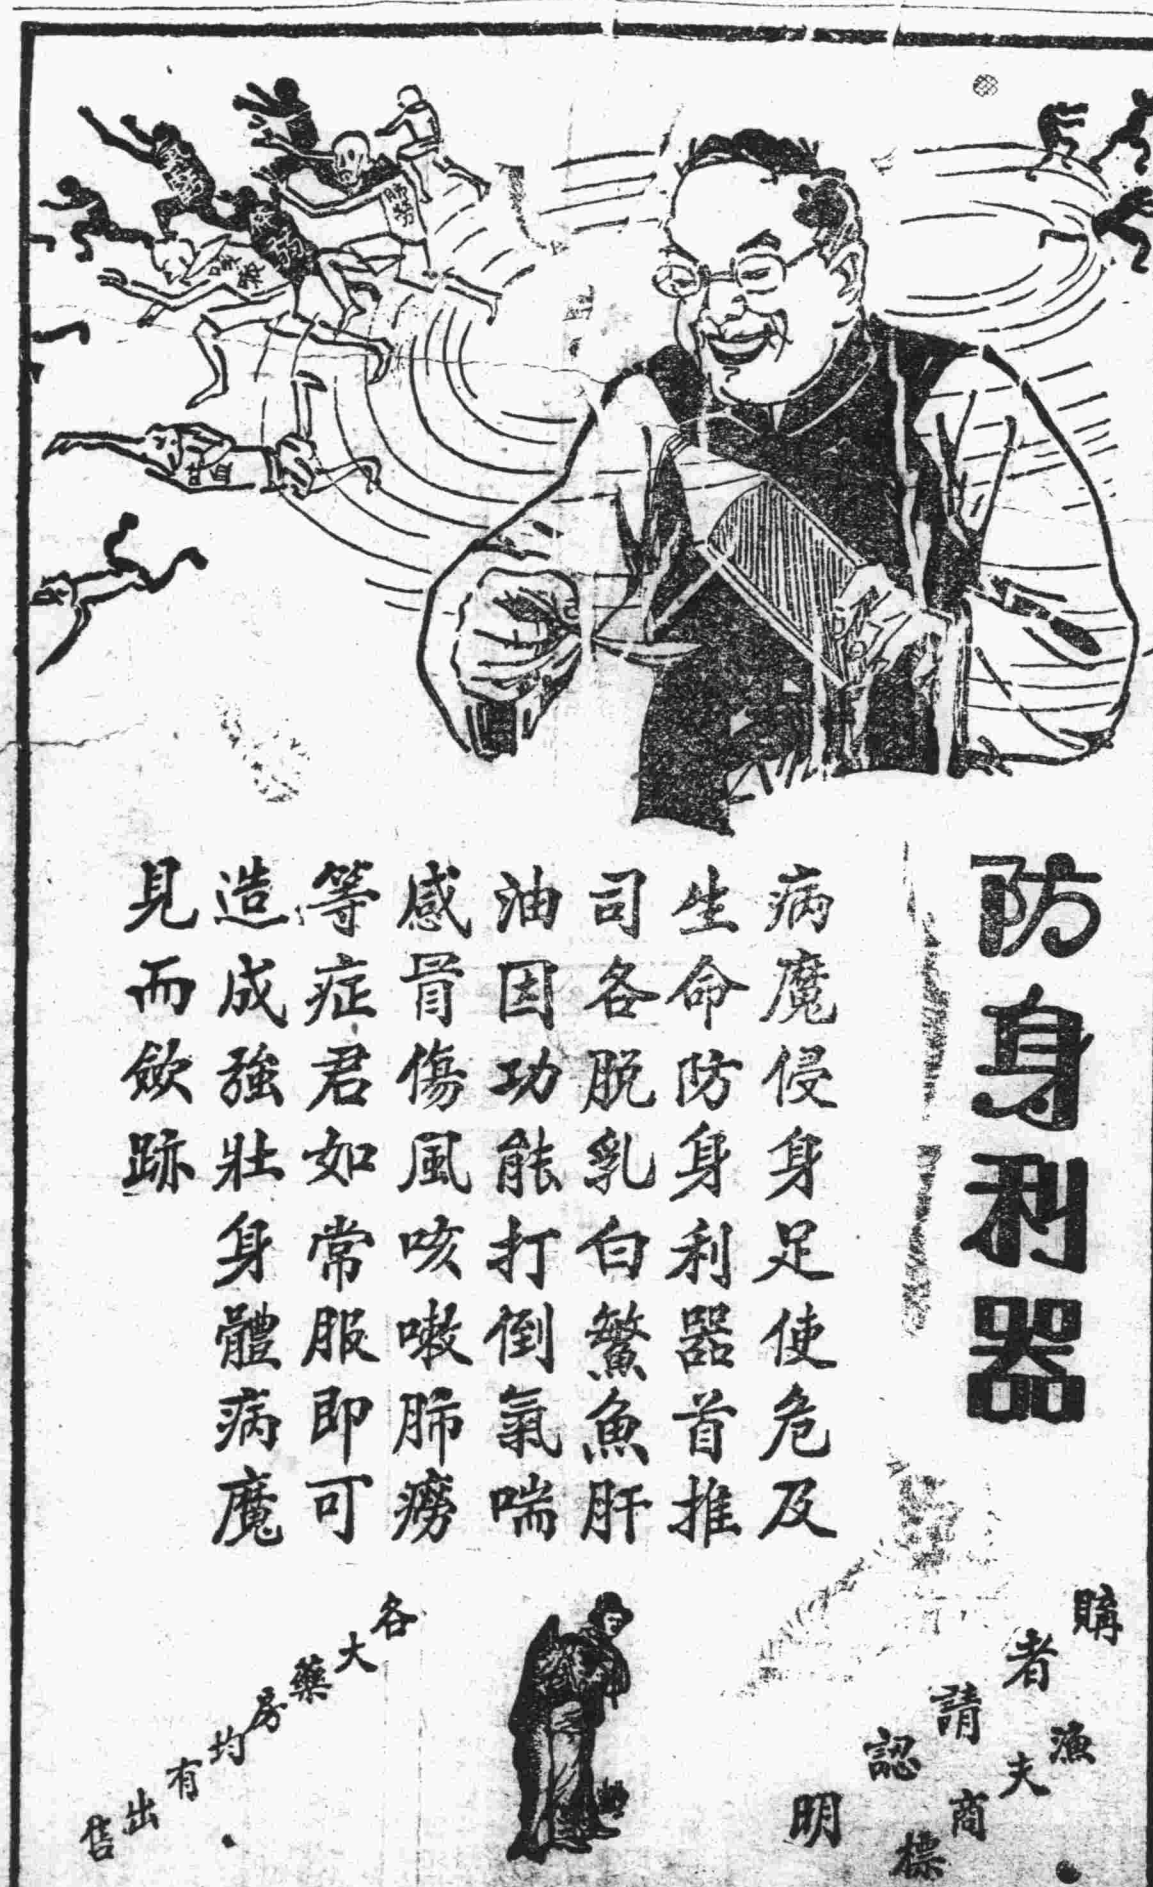 防身利器
病魔侵身足使危及
生命防身利器首推
司各脱乳白鰵魚肝
油因功能打倒氣喘
感冐傷風咳嗽肺癆
等症君如常服即可
造成強壯身體病魔
見而歛跡
購者請認明
漁夫商標
各大藥房均有出售
肺癆